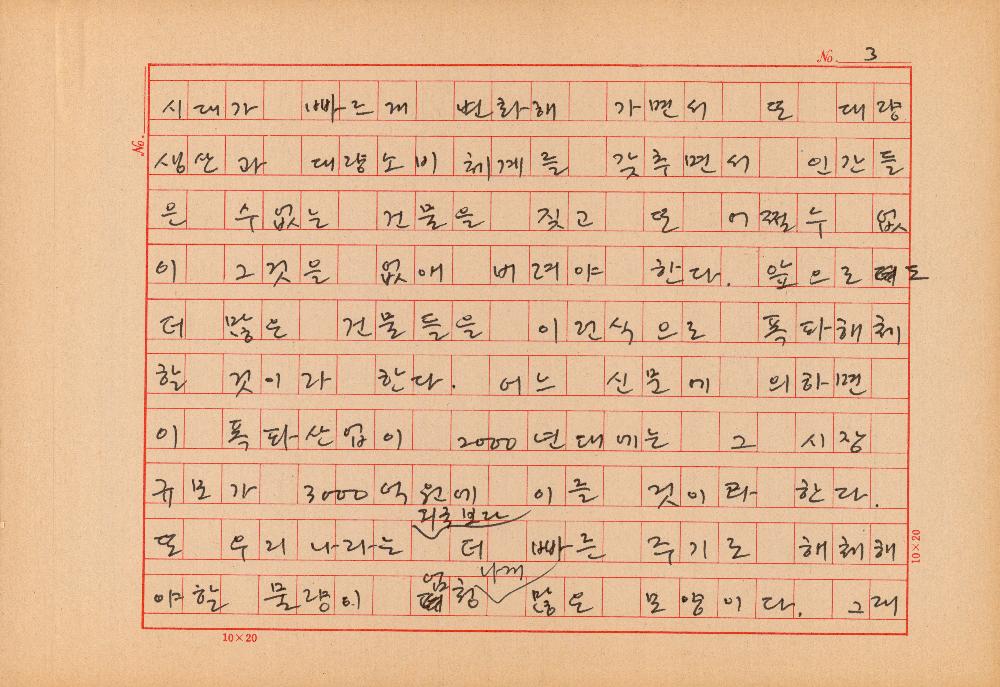 No. 3
No.
시대가 빠르게 변화해 가면서 또 대량
생산과 대량소비 체계를 갖추면서 인간들
은 수없는 건물을 짖고 또 어쩔수 없
이 그것을 없애 버려야 한다. 앞으로도
더 많은 건물들을 이런식으로 폭파해체
할 것이라 한다. 어느 신문에 의하면
이 폭파산업이 2000년대에는 그 시장
규모가 3000억원에 이를 것이라 한다.
외국보다
또 우리나라는 더 빠른 주기로 해체해
나게
야할 물량이 엄청 많은 모양이다. 그래
10×20
10×20